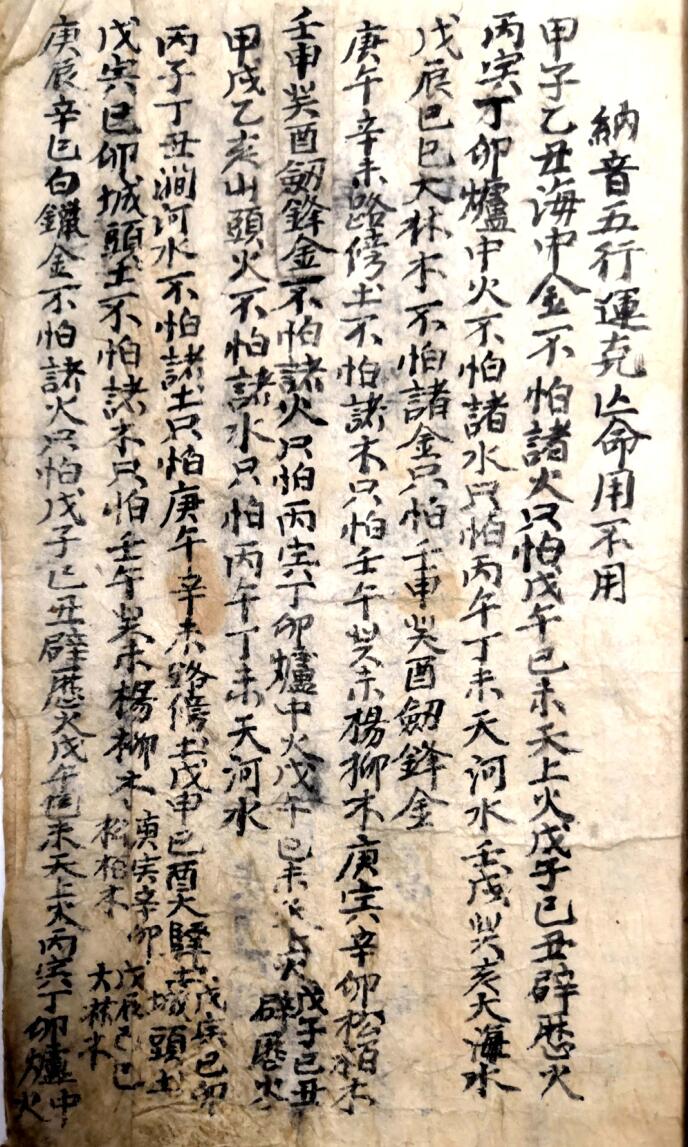 納音五行運克亡命用不用
甲子乙丑海中金不怕諸火只怕戊午己未天上火戊子己丑辟歷火
丙寅丁卯爐中火不怕諸水只怕丙午丁未天河水壬戌癸亥大海水
戊辰己巳大林木不怕諸金只怕壬申癸酉劔鋒金
庚午辛未路傍土不怕諸木只怕壬午癸未楊柳木庚寅辛卯松柏木
壬申癸酉劔鋒金不怕諸火只怕丙寅丁卯爐中火戊午己未天上火戊子己丑
辟歷火
甲戌乙亥山頭火不怕諸水只怕丙午丁未天河水
丙子丁丑澗河水不怕諸土只怕庚午辛未路傍土戊申己酉大驛土戊寅己卯
城頭土
戊寅己卯城頭土不怕諸木只怕壬午癸未楊柳木庚寅辛卯
松柏木
戊辰己巳
大林木
庚辰辛巳白鑞金不怕諸火只怕戊子己丑辟歷火戊午己未天上火丙寅丁卯爐中火